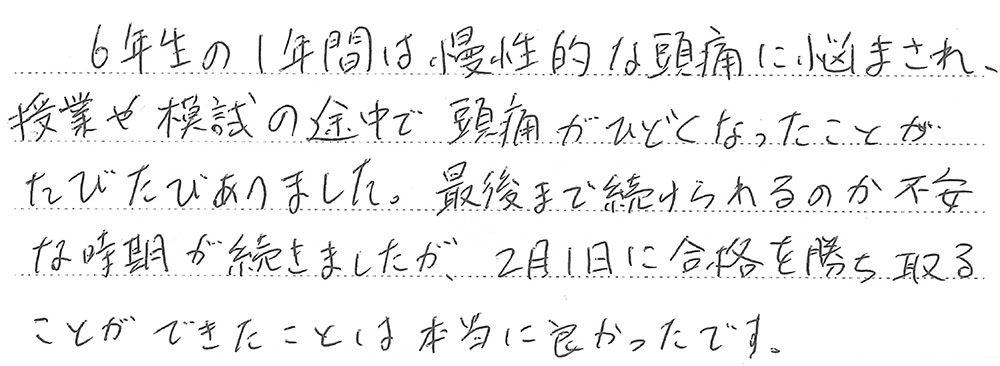 6年生の1年間は慢性的な頭痛に悩まされ、
授業や模試の途中で頭痛がひどくなったことが
たびたびありました。最後まで続けられるのか不安
な時期が続きましたが、2月1日に合格を勝ち取る
ことができたことは本当に良かったです。